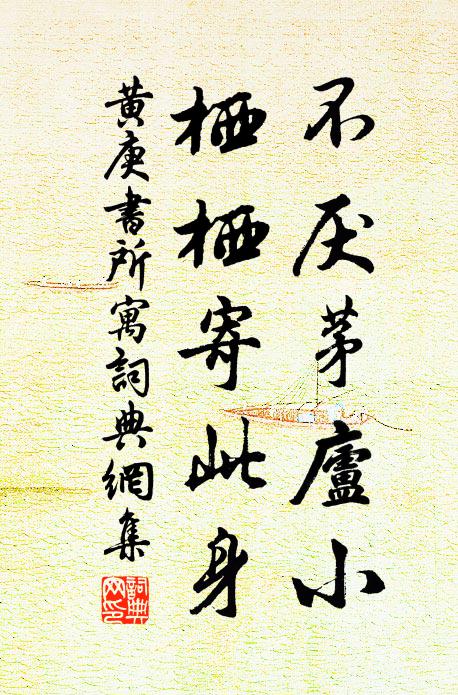 不厌茅廬小
栖栖寄此身
黄庚書所寓詞典網集
詞典网印